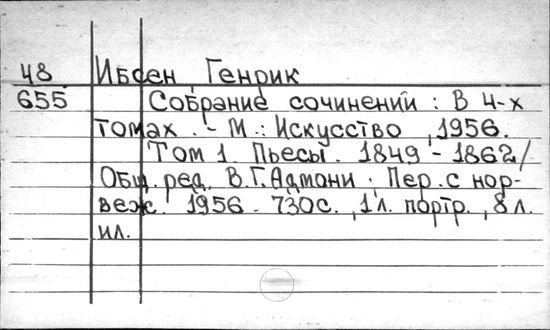 48 Ибсен Генрик
655 Собрание сочинений : В 4-х
томах . - М.: Искусство , 1956.
Том 1. Пьесы. 1849 - 1862/
Общ. ред. В.Г.Адмони ; Пер. с нор-
веж. 1956 - 730с. , 1л. портр. , 8л.
ил.